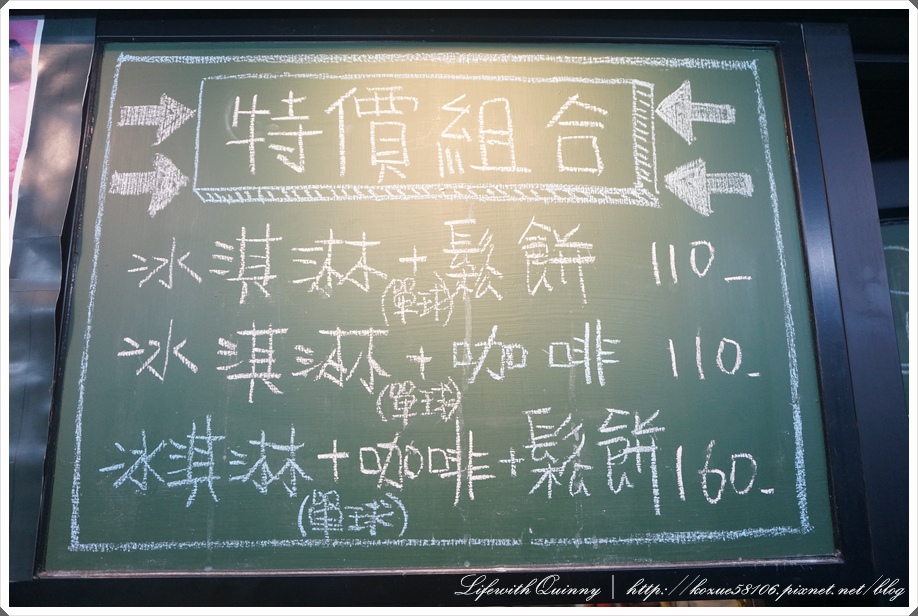 特價組合
冰淇淋+鬆餅 110_
(單球)
冰淇淋+咖啡 110_
(單球)
冰淇淋+咖啡+鬆餅 160_
(單球)
Lifewith Quinny | http://kozue58106.pixnet.net/blog